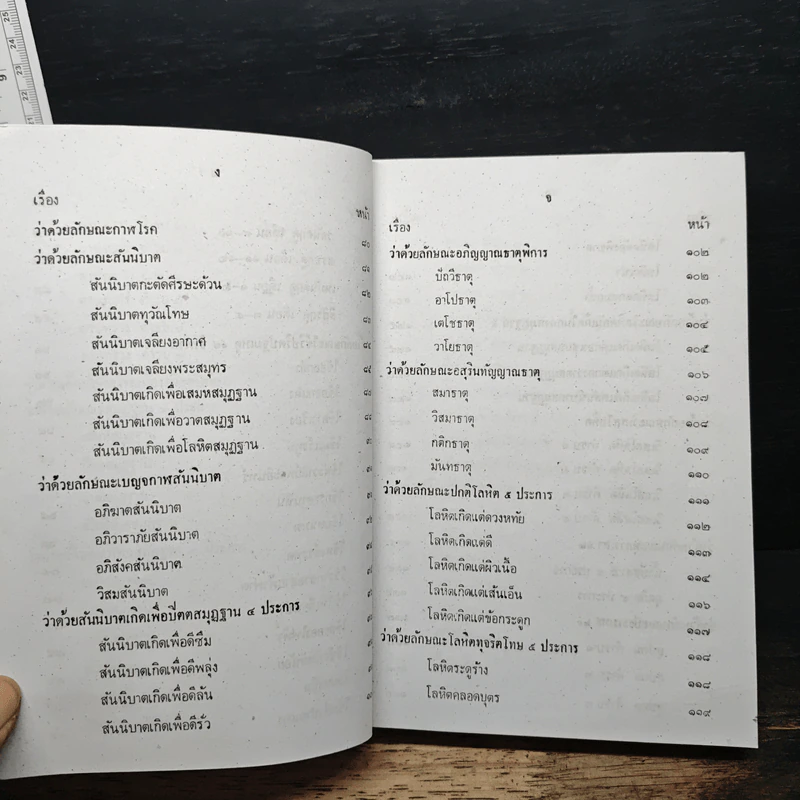 ง
เรื่อง หน้า
ว่าด้วยลักษณะกาฬโรค ๘๐
ว่าด้วยลักษณะสันนิบาต
สันนิบาตกะตัดศีรษะด้วน
สันนิบาตทุวัณโทษ
สันนิบาตเจลียงอากาศ
สันนิบาตเจลียงพระสมุทร
สันนิบาตเกิดเพื่อเสมหสมุฏฐาน
สันนิบาตเกิดเพื่อวาตสมุฏฐาน
สันนิบาตเกิดเพื่อโลหิตสมุฏฐาน
ว่าด้วยลักษณะเบญจกาฬสันนิบาต
อภิฆาตสันนิบาต
อภิวาราภัยสันนิบาต
อภิสังคสันนิบาต
วิสมสันนิบาต
ว่าด้วยสันนิบาตเกิดเพื่อปิตตสมุฏฐาน ๔ ประการ
สันนิบาตเกิดเพื่อดีซึม
สันนิบาตเกิดเพื่อดีพลุ่ง
สันนิบาตเกิดเพื่อดีล้น
สันนิบาตเกิดเพื่อดีรั่ว
เรื่อง หน้า
ว่าด้วยลักษณะอภิญญาณธาตุพิการ ๑๐๒
ปัถวีธาตุ ๑๐๒
อาโปธาตุ ๑๐๓
เตโชธาตุ ๑๐๔
วาโยธาตุ ๑๐๕
ว่าด้วยลักษณะอสุรินทัญญาณธาตุ ๑๐๖
สมาธาตุ ๑๐๗
วิสมาธาตุ ๑๐๘
กติกธาตุ ๑๐๙
มันทธาตุ ๑๑๐
ว่าด้วยลักษณะปกติโลหิต ๕ ประการ ๑๑๑
โลหิตเกิดแต่ดวงหทัย ๑๑๒
โลหิตเกิดแต่ดี ๑๑๓
โลหิตเกิดแต่ผิวเนื้อ ๑๑๔
โลหิตเกิดแต่เส้นเอ็น ๑๑๖
โลหิตเกิดแต่ข้อกระดูก ๑๑๗
ว่าด้วยลักษณะโลหิตทุจริตโทษ ๕ ประการ ๑๑๘
โลหิตระดูร้าง ๑๑๘
โลหิตคลอดบุตร ๑๑๙